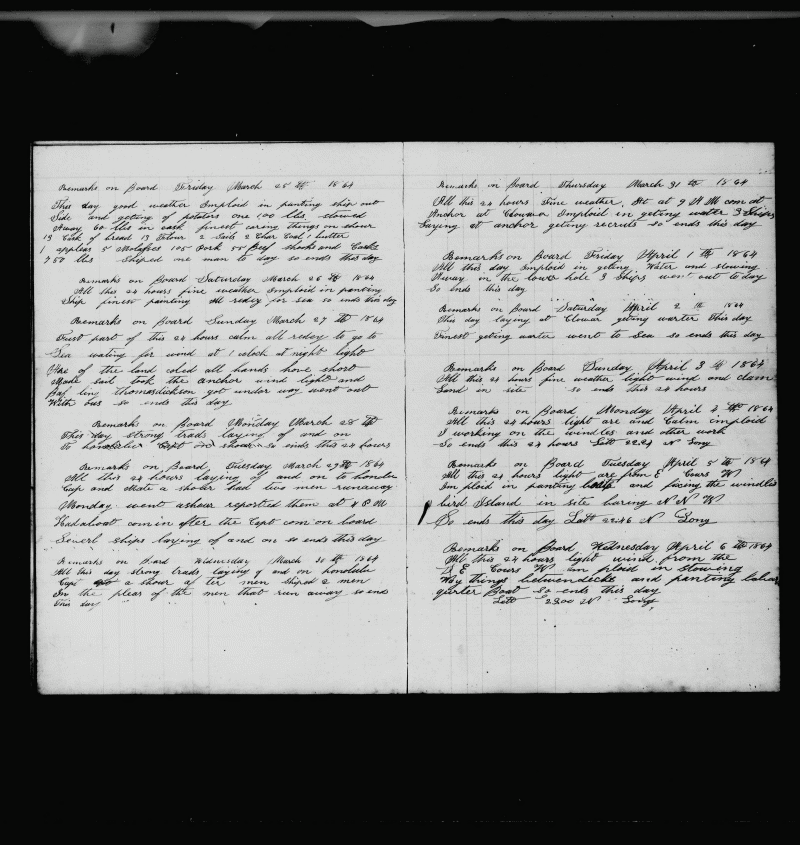 Remarks on Board Friday March 25 th 1864
This day good weather Imploid in panting ship out
Side and geting of potators one 100 lbs stowed
Away 60 lbs in each finest caring things on shour
13 Cask of bread 13 Flour 2 Sails 2 Char Coal 1 butter
1 appleas 5 Molasses 105 Pork 55 Beef shooks and Casks
750 lbs Shiped one man to day so ends this day
Remarks on Board Saturday March 26 th 1864
All this 24 hours fine weather Imploid in panting
Ship finest painting all redey for Sea so ends this day
Remarks on Board Sunday March 27 th 1864
Furst part of this 24 hours calm all redey to go to
Sea wating for wind at 1 oclock at night light
Are of the land coled all hands hove short
Made sail took the anchor wind light and
thomas dickson got under way went out
With ous so ends this day
Remarks on Board Monday March 28 th
This day strong trads laying of and on
To honolulu Capt on shour so ends this 24 hours
Remarks on Board Tuesday March 29 th 1864
All this 24 hours laying of and on to honolu
Cap and Mate a shour had two men runaway
Monday went ashour reported them at 4 P M
Had aboat com in after the Capt com on board
Severl ships laying of and on so ends this day
Remarks on Board Wednesday March 30 th 1864
All this day strong trads laying of and on honolulu
Capt a shour after men shiped 2 men
In the plear of the men that run away so ends
This day
Remarks on Board Thursday March 31 th 1864
All this 24 hours Fine weather. At at 9 A M com at
Anchor at Imploid in geting water 3 Ships
Laying at anchor geting recruts so ends this day
Remarks on Board Friday April 1 th 1864
All this day Imploid in geting Water and stowing
Away in the lower hole 3 Ships went out to day
So ends this day
Remarks on Board Saturday April 2 th 1864
This day laying at geting warter This day
Finest geting warter went to Sea so ends this day
Remarks on Board Sunday April 3 th 1864
All this 24 hours fine weather light wind and clam
Land in site so ends this 24 hours
Remarks on Board Monday April 4 th 1864
All this 24 hours light are and Calm imploid
I working on the windles and other work
So ends this 24 hours Latt 22.24 N Long
Remarks on Board Tuesday April 5 th 1864
All this 24 hours light are from E Cours W
Im ploid in panting boats and fixing the windles
bird Island in site baring N N W
So ends this day Latt 22:46 N Long
Remarks on Board Wednesday April 6 th 1864
All this 24 hours light wind from the
E Cours W im ploid in stowing
Way things betwendecks and panting labar
qurter Boat so ends this day
Latt 23.00 N Long